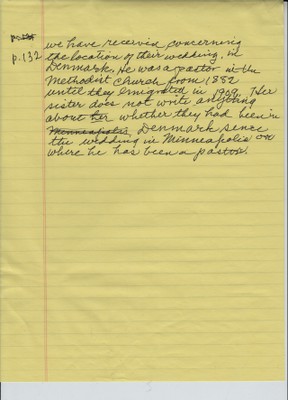 p.132 we have received concerning
the location of their wedding in
Denmark. He was a pastor in the
Methodist Church from 1882
until they emigrated in 1909. Her
sister does not write anything
about her whether they had been in
Minneapolis, Denmark since
the wedding in Minneapolis or
where he has been a pastor.